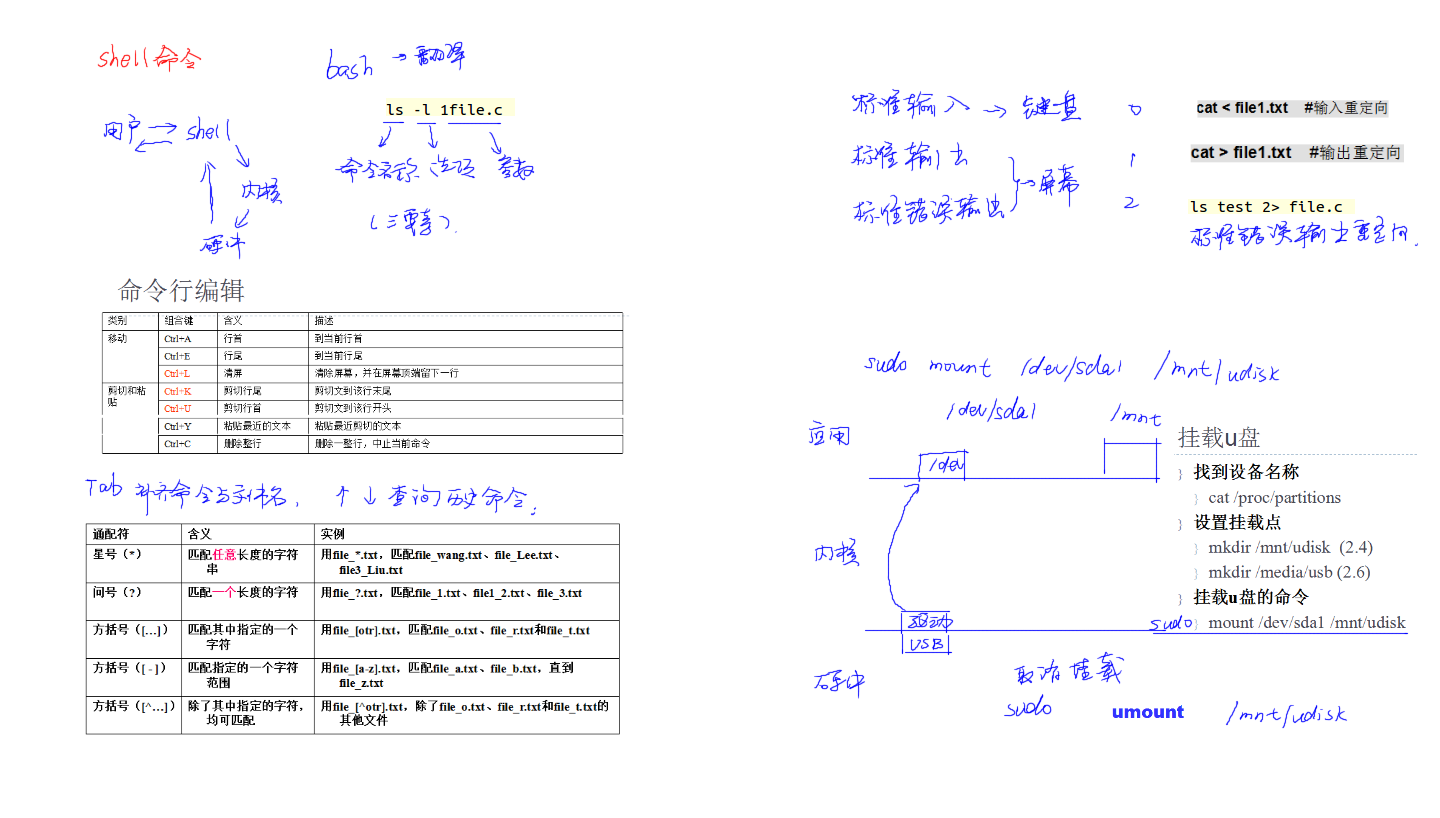 shell命令
bash → 翻译
ls -l 1file.c
命令名称 选项 参数
(三要素).
用户 shell
内核
硬件
命令行编辑
类别 组合键 含义 描述
移动 Ctrl+A 行首 到当前行首
Ctrl+E 行尾 到当前行尾
Ctrl+L 清屏 清除屏幕，并在屏幕顶端留下一行
剪切和粘贴 Ctrl+K 剪切行尾 剪切文到该行末尾
Ctrl+U 剪切行首 剪切文到该行开头
Ctrl+Y 粘贴最近的文本 粘贴最近剪切的文本
Ctrl+C 删除整行 删除一整行，中止当前命令
Tab 补齐命令与文件名, ↑ ↓ 查询历史命令;
通配符 含义 实例
星号（*） 匹配任意长度的字符串 用file_*.txt，匹配file_wang.txt、file_Lee.txt、
file3_Liu.txt
问号（?） 匹配一个长度的字符 用flie_?.txt，匹配file_1.txt、file1_2.txt、file_3.txt
方括号（[…]） 匹配其中指定的一个字符 用file_[otr].txt，匹配file_o.txt、file_r.txt和file_t.txt
方括号（[ - ]） 匹配指定的一个字符范围 用file_[a-z].txt，匹配file_a.txt、file_b.txt，直到
file_z.txt
方括号（[^…]） 除了其中指定的字符，均可匹配 用file_[^otr].txt，除了file_o.txt、file_r.txt和file_t.txt的
其他文件
标准输入 → 键盘 0
标准输出 1
标准错误输出 → 屏幕 2
cat < file1.txt #输入重定向
cat > file1.txt #输出重定向
ls test 2> file.c
标准错误输出重定向.
sudo mount /dev/sda1 /mnt/udisk
/dev/sda1 /mnt
应用
/dev
内核
驱动
USB
硬件
挂载u盘
找到设备名称
cat /proc/partitions
设置挂载点
mkdir /mnt/udisk (2.4)
mkdir /media/usb (2.6)
挂载u盘的命令
sudo mount /dev/sda1 /mnt/udisk
取消挂载
sudo umount /mnt/udisk